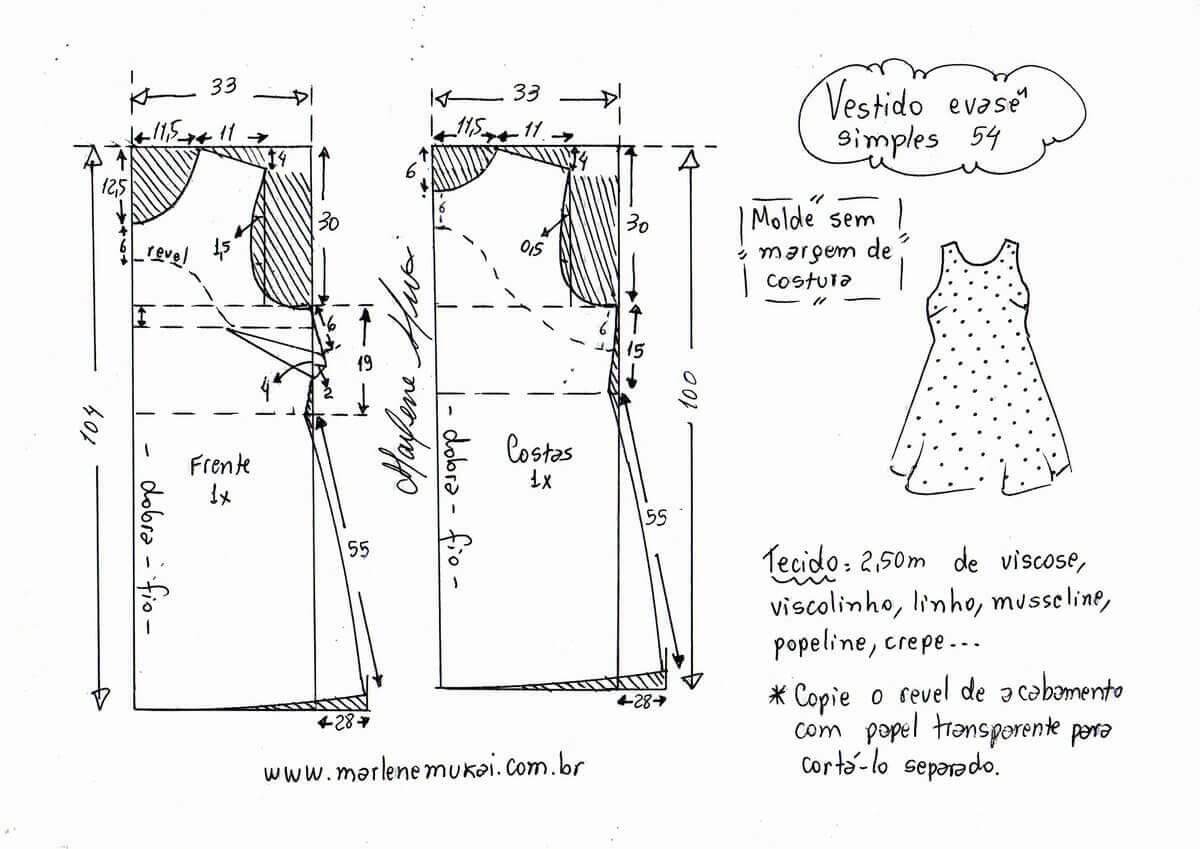 33
11,5 11
4
12,5
6
revel
1,5
30
6
4
2
19
104
Frente
1x
- dobra - fio -
55
28
Marlene Mukai
33
11,5 11
4
6
6
0,5
30
6
15
100
Costas
1x
- dobra - fio -
55
28
www.marlenemukai.com.br
Vestido evasê
simples 54
Molde sem
margem de
costura
Tecido: 2,50m de viscose,
viscolinho, linho, musseline,
popeline, crepe...
* Copie o revel de acabamento
com papel transparente para
cortá-lo separado.